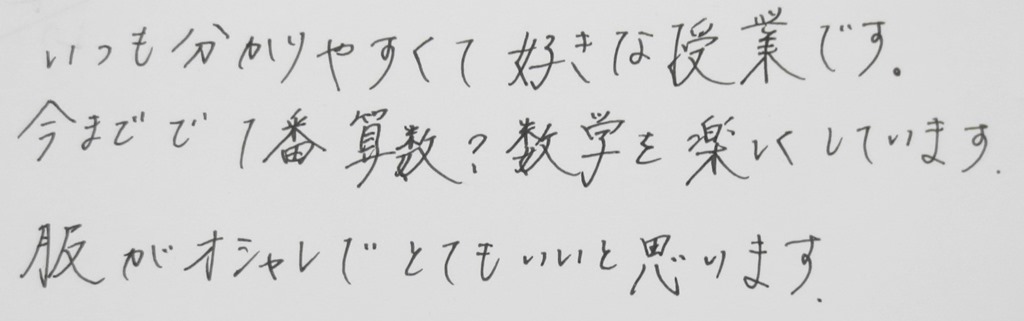 いつも分かりやすくて好きな授業です。
今までで1番算数?数学を楽しくしています.
服がオシャレでとてもいいと思います.